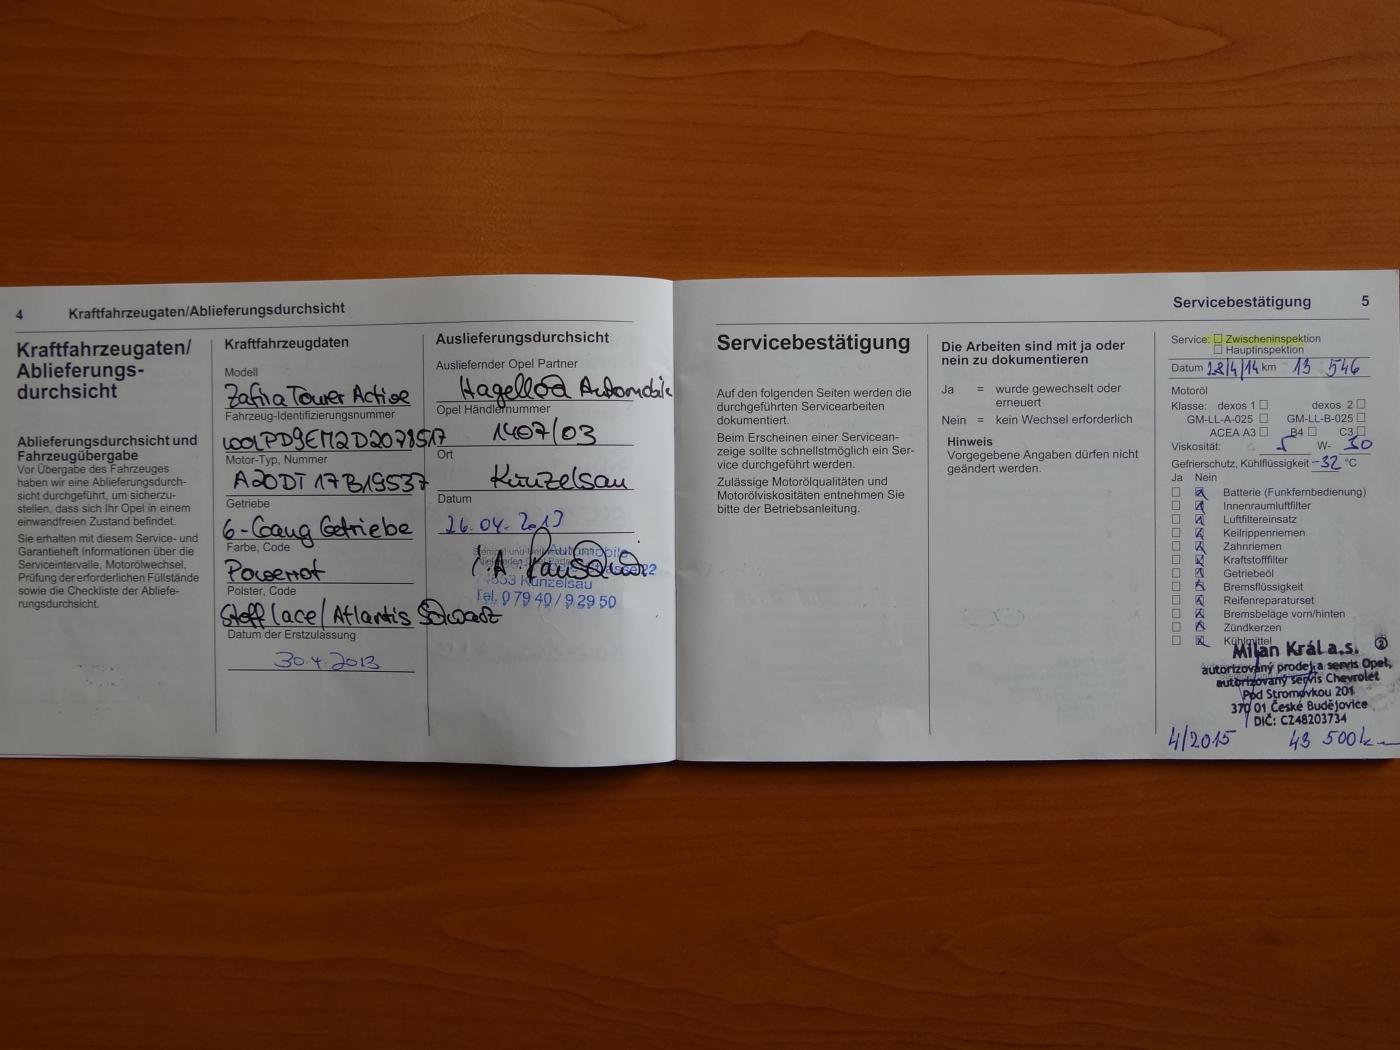 4 Kraftfahrzeugaten/Ablieferungsdurchsicht
Kraftfahrzeugaten/
Ablieferungs-
durchsicht
Ablieferungsdurchsicht und
Fahrzeugübergabe
Vor Übergabe des Fahrzeuges
haben wir eine Ablieferungsdurch-
sicht durchgeführt, um sicherzu-
stellen, dass sich Ihr Opel in einem
einwandfreien Zustand befindet.
Sie erhalten mit diesem Service- und
Garantieheft Informationen über die
Serviceintervalle, Motorölwechsel,
Prüfung der erforderlichen Füllstände
sowie die Checkliste der Abliefe-
rungsdurchsicht.
Kraftfahrzeugdaten
Modell
Zafira Tourer Active
Fahrzeug-Identifizierungsnummer
W0LPD9EM2D2078517
Motor-Typ, Nummer
A20DT 17B19537
Getriebe
6-Gang Getriebe
Farbe, Code
Powerrot
Polster, Code
Stoff lace/Atlantis Schwarz
Datum der Erstzulassung
30.4.2013
Auslieferungsdurchsicht
Ausliefernder Opel Partner
Hagelloa Automobile
Opel Händlernummer
1407/03
Ort
Künzelsau
Datum
26.04.2013
i.A.
74653 Künzelsau
Tel. 0 79 40 / 9 29 50
Servicebestätigung 5
Servicebestätigung
Auf den folgenden Seiten werden die
durchgeführten Servicearbeiten
dokumentiert.
Beim Erscheinen einer Servicean-
zeige sollte schnellstmöglich ein Ser-
vice durchgeführt werden.
Zulässige Motorölqualitäten und
Motorölviskositäten entnehmen Sie
bitte der Betriebsanleitung.
Die Arbeiten sind mit ja oder
nein zu dokumentieren
Ja = wurde gewechselt oder
erneuert
Nein = kein Wechsel erforderlich
Hinweis
Vorgegebene Angaben dürfen nicht
geändert werden.
Service: Zwischeninspektion
Hauptinspektion
Datum 28/4/14 km 13 546
Motoröl
Klasse: dexos 1 dexos 2
GM-LL-A-025 GM-LL-B-025
ACEA A3 B4 C3
Viskosität: 5 W- 30
Gefrierschutz, Kühlflüssigkeit -32 °C
Ja Nein
Batterie (Funkfernbedienung)
Innenraumluftfilter
Luftfiltereinsatz
Keilrippenriemen
Zahnriemen
Kraftstofffilter
Getriebeöl
Bremsflüssigkeit
Reifenreparaturset
Bremsbeläge vorn/hinten
Zündkerzen
Kühlmittel
Milan Král a.s. 2
autorizovaný prodej a servis Opel,
autorizovaný servis Chevrolet
Pod Stromovkou 201
370 01 České Budějovice
DIČ: CZ48203734
4/2015 43 500 km